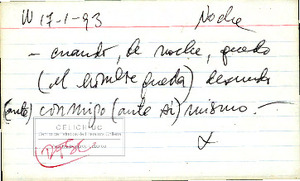 W 17-1-93 Noche
- cuando, de noche, quedo
(el hombre queda) desnudo
(ante) conmigo (ante sí) mismo. -
CELICH UC